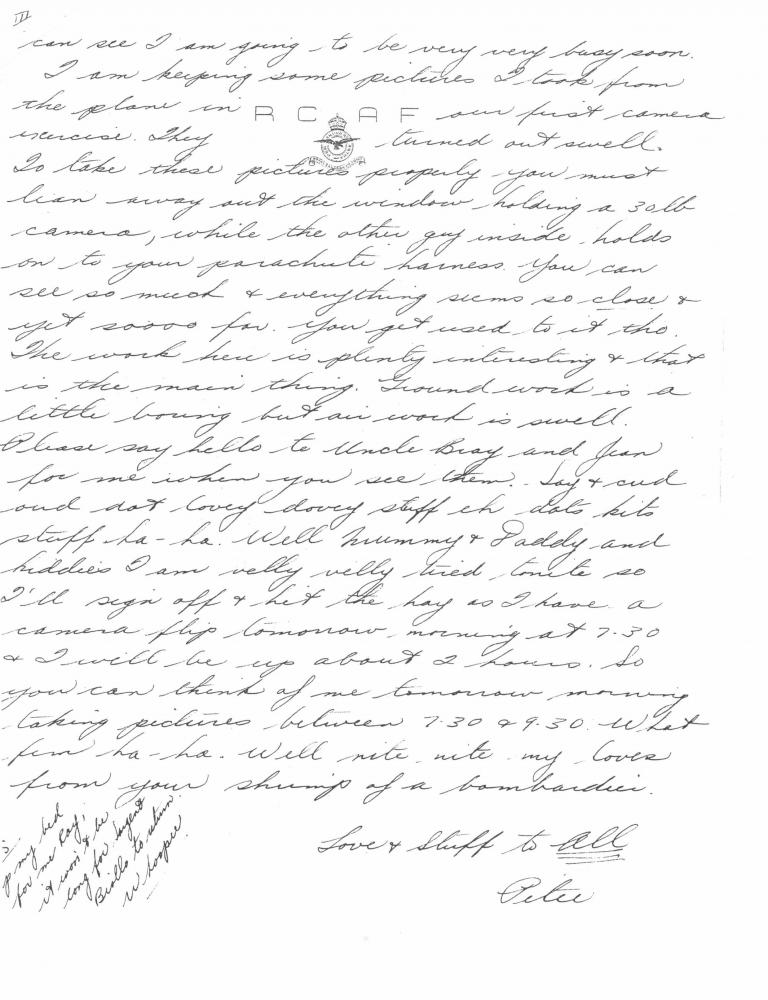 III
can see I am going to be very very busy soon.
I am keeping some pictures I took from
the plane in R C A F our first camera
exercise. They turned out swell.
To take these pictures properly you must
lean away out the window holding a 30 lb
camera, while the other guy inside holds
on to your parachute harness. You can
see so much & everything seems so close &
yet soooo far. You get used to it tho.
The work here is plenty interesting & that
is the main thing. Ground work is a
little boring but air work is swell.
Please say hello to Uncle Bray and Jean
for me when you see them. Say &
and dat lovey dovey stuff eh dats kits
stuff ha-ha. Well Mummy & Daddy and
kiddies I am velly velly tired tonite so
I'll sign off & hit the hay as I have a
camera flip tomorrow morning at 7.30
& I will be up about 2 hours. So
you can think of me tomorrow morning
taking pictures between 7.30 & 9.30. What
fun ha-ha. Well nite nite my loves
from your shrimp of a bombardier.
Love & Stuff to All
Peter
my bed
for me Ray,
it won't be
long for
to return.
Whoopee.